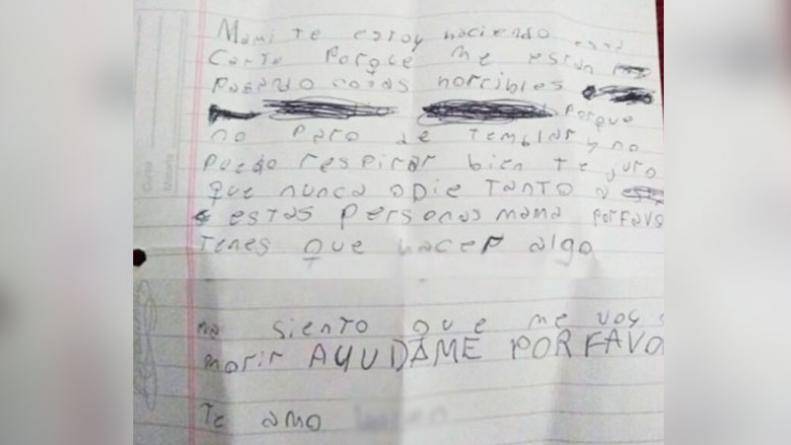 Mami te estoy haciendo esta
Carta Porque me estan
Pasando cosas horribles
Porque
no Paro de Temblar y no
Puedo respirar bien te juro
que nunca odie TANTO a
estas personas mama PORFAVO
Tenes que hacer algo
me siento que me voy a
morir AYUDAME POR FAVO
Te amo